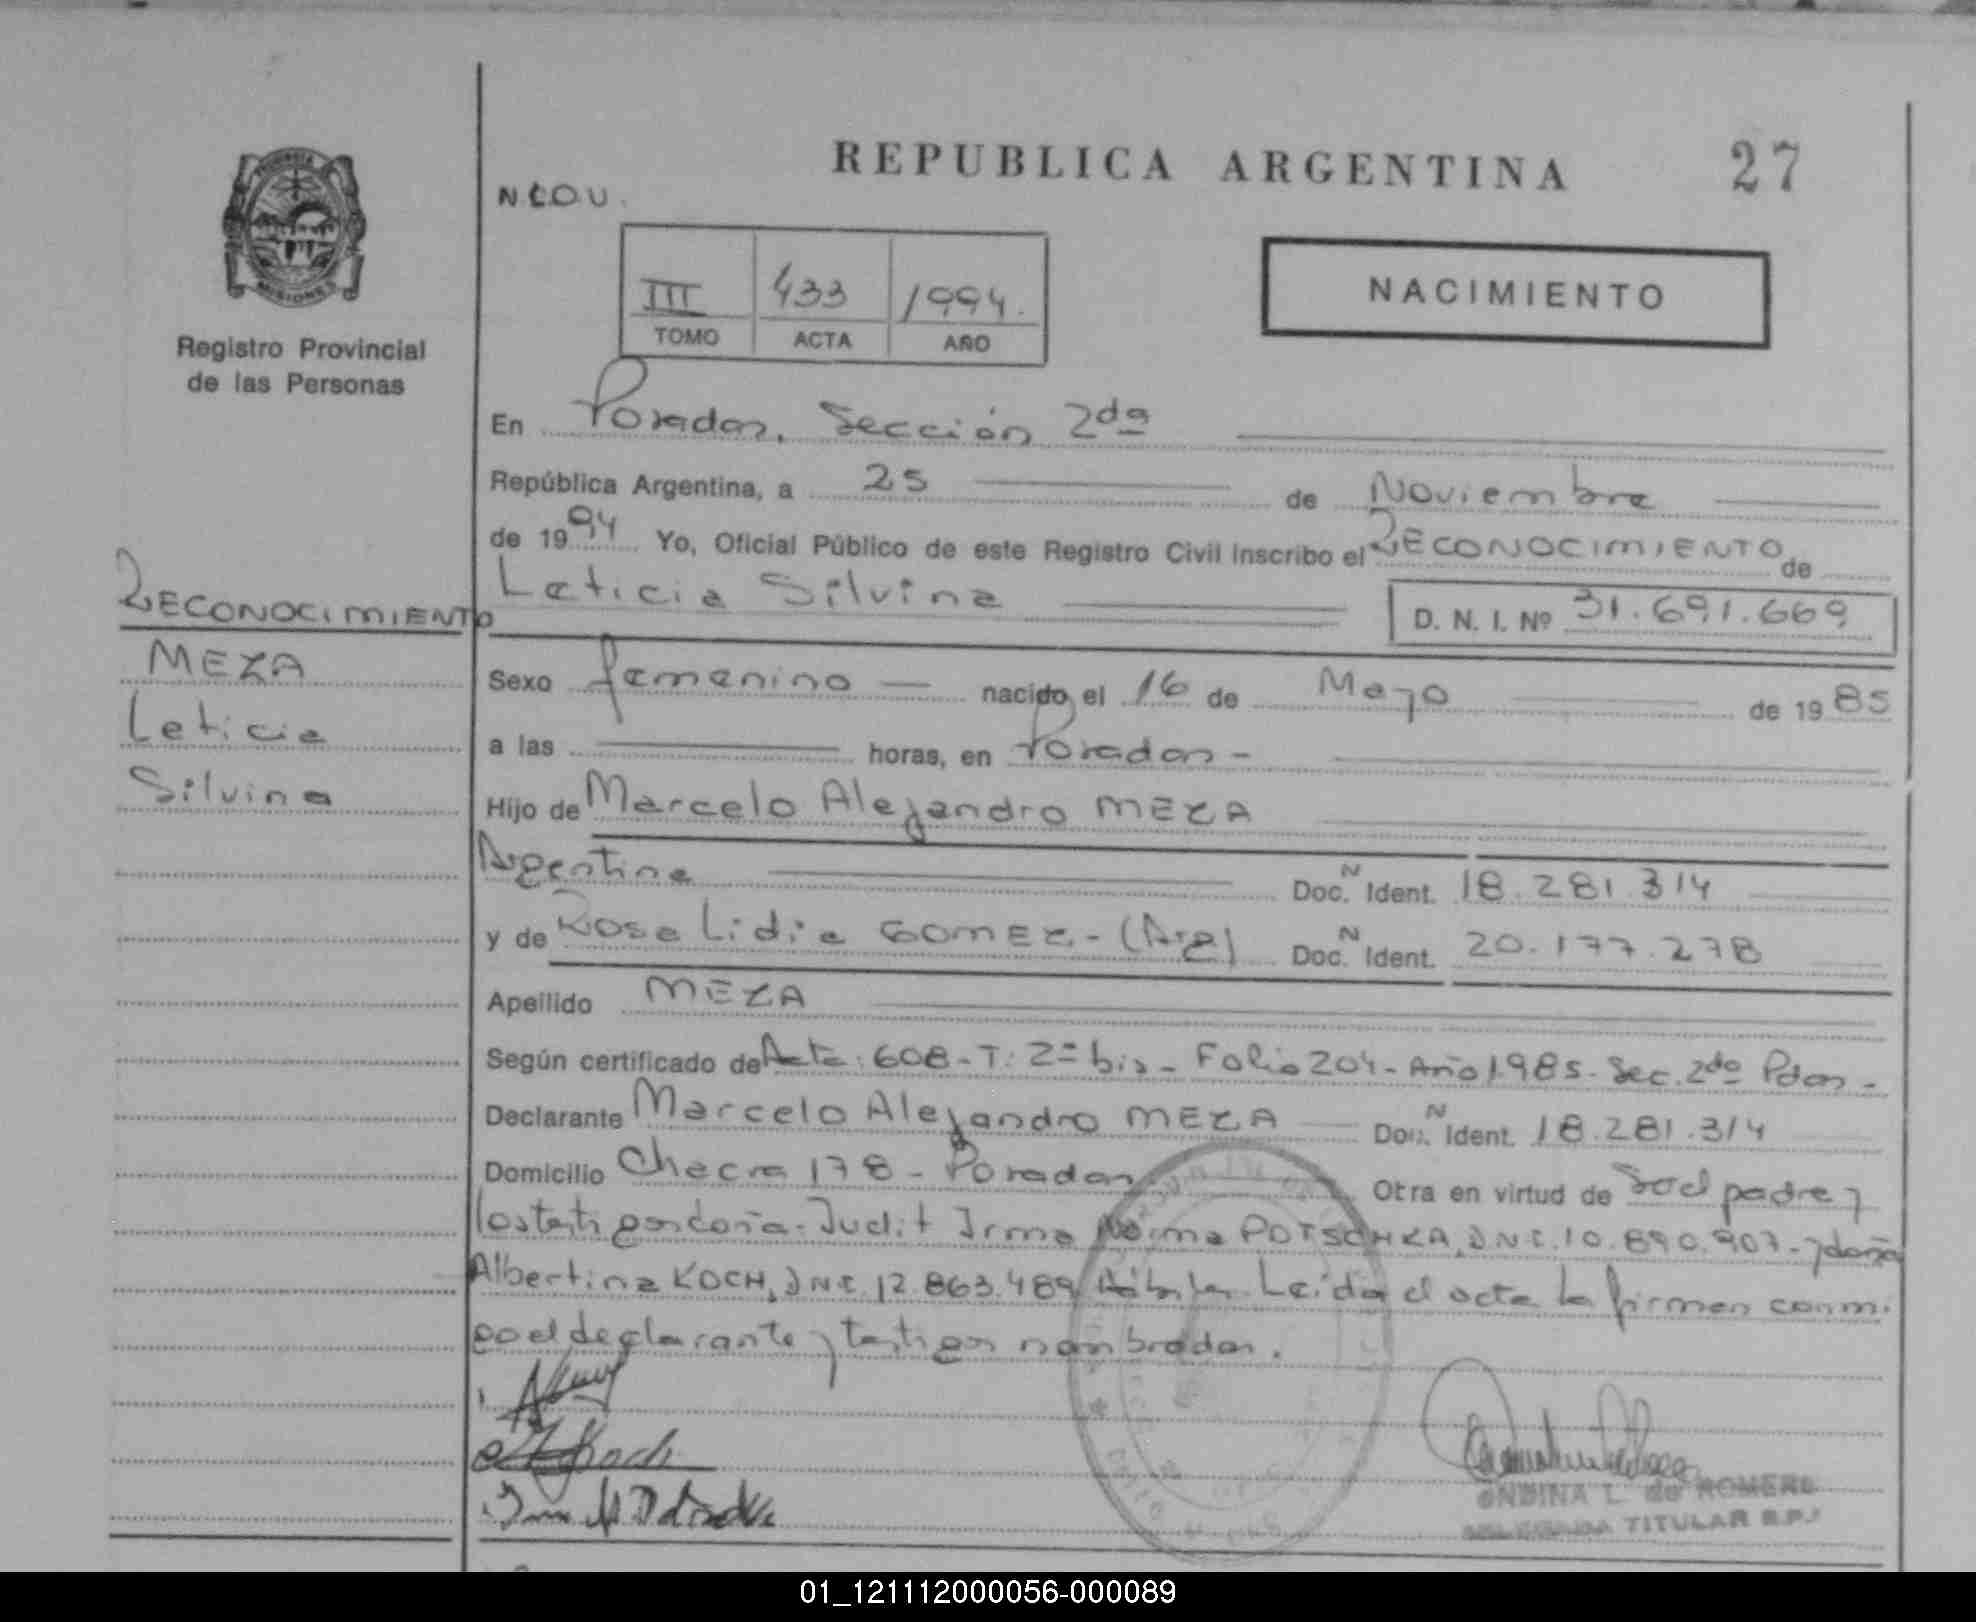 REPUBLICA ARGENTINA 27
N.C.O.U.
III 433 1994.
TOMO ACTA AÑO
NACIMIENTO
MISIONES
Registro Provincial
de las Personas
En Posadas, Sección 2da
República Argentina, a 25 de Noviembre
de 1994 Yo, Oficial Público de este Registro Civil inscribo el RECONOCIMIENTO de
Leticia Silvina D. N. I. Nº 31.691.669
RECONOCIMIENTO
MEZA
Leticia
Silvina
Sexo femenino nacido el 16 de Mayo de 1985
a las horas, en Posadas -
Hijo de Marcelo Alejandro MEZA
Argentina Doc. N Ident. 18.281.314
y de Rosa Lidia GOMEZ - (Arg) Doc. N Ident. 20.177.278
Apellido MEZA
Según certificado de Acta: 608 - T: 2º bis - Folio 204 - Año 1985 - Sec. 2da Pdas -
Declarante Marcelo Alejandro MEZA Doc. N Ident. 18.281.314
Domicilio Chacra 178 - Posadas Otra en virtud de So el padre y
los testigos doña: Judit Irma Norma POTSCHKA, DNI. 10.890.907 - y doña
Albertina KOCH, DNI. 12.863.489 Leída el acta la firman conmi
go el declarante y testigos nombrados.
Koch
ONDINA L. de ROMERO
DELEGADA TITULAR R.P.
01_121112000056-000089